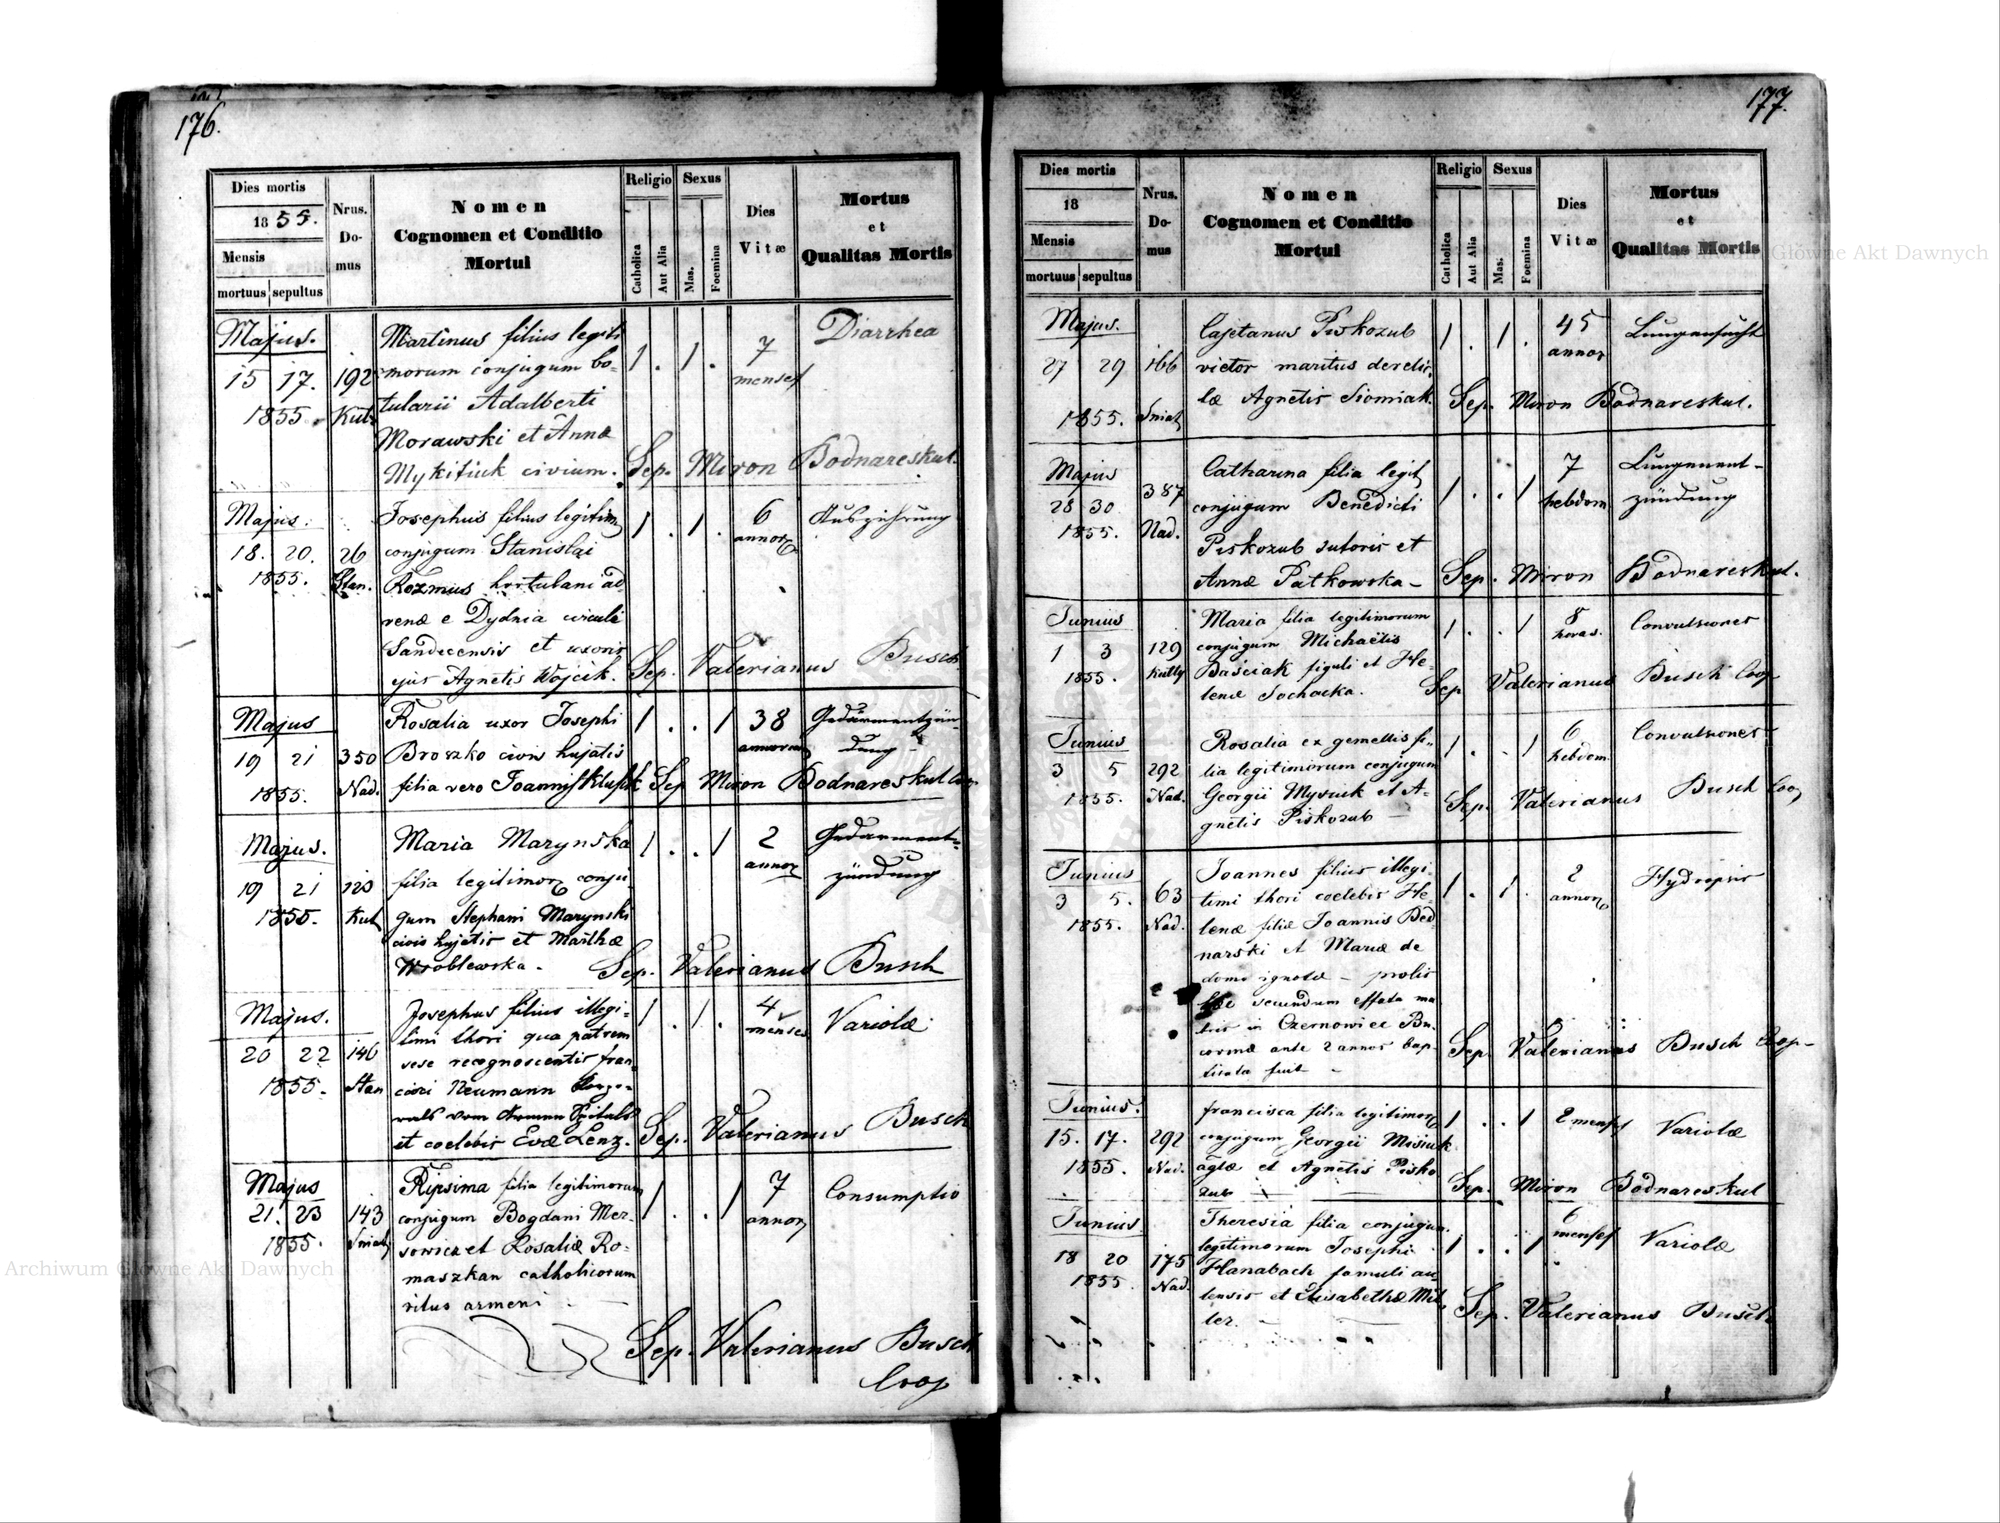 176.
Dies mortis
1855.
Mensis
mortuus sepultus
Nrus.
Do-
mus
Nomen
Cognomen et Conditio
Mortui
Religio
Catholica
Aut Alia
Sexus
Mas.
Foemina
Dies
Vitæ
Mortus
et
Qualitas Mortis
Majus.
15 17. 192
1855. Kut
Martinus filius legiti
morum conjugum bo-
tularii Adalberti
Morawski et Annæ
Mykitiuk civium.
1 . 1 .
7
menses
Diarrhea
Sep. Miron Bodnareskul.
Majus.
18. 20. 26
1855. Stan.
Josephus filius legitim
conjugum Stanislai
Rozmus hortulani ad-
venæ e Dydnia circuli
Sandecensis et uxoris
ejus Agnetis Wojcik.
1 . 1 .
6
annor
Auszehrung
Sep. Valerianus Busch
Majus
19 21 350
1855. Nad.
Rosalia uxor Josephi
Broszko civis hujatis
filia vero Joannis
1 . . 1
38
annorum
Gedärmentzün-
dung
Sep Miron Bodnareskul Coop
Majus.
19 21 120
1855. Kut
Maria Marynska
filia legitimor conju-
gum Stephani Marynski
civis hujatis et Marthæ
Wroblewska.
1 . . 1
2
annor
Gedärment-
zündung
Sep. Valerianus Busch
Majus.
20 22 146
1855. Stan
Josephus filius illegi-
timi thori qua patrem
sese recognoscentis fran-
cisci Neumann
vom Spitals
et coelebis Evæ Lenz.
1 . 1 .
4
menses
Variolæ
Sep. Valerianus Busch
Majus
21. 23 143
1855. Sniat
Ripsima filia legitimorum
conjugum Bogdani Mer-
sowicz et Rosaliæ Ro-
maszkan catholicorum
ritus armeni
1 . . 1
7
annor
Consumptio
Sep. Valerianus Busch
Coop
177.
Dies mortis
18
Mensis
mortuus sepultus
Nrus.
Do-
mus
Nomen
Cognomen et Conditio
Mortui
Religio
Catholica
Aut Alia
Sexus
Mas.
Foemina
Dies
Vitæ
Mortus
et
Qualitas Mortis
Majus.
27 29 166
1855. Sniat
Cajetanus Piskozub
victor maritus derelic-
tæ Agnetis Siomiak.
1 . 1 .
45
annor
Lungensucht
Sep. Miron Bodnareskul.
Majus
28 30 387
1855. Nad.
Catharina filia legit
conjugum Benedicti
Piskozub sutoris et
Annæ Patkowska -
1 . . 1
7
hebdom
Lungenent-
zündung
Sep. Miron Bodnareskul.
Junius
1 3 129
1855. Kutty
Maria filia legitimorum
conjugum Michaëlis
Baściak figuli et He-
lenæ Sochacka.
1 . . 1
8
horas.
Convulsiones
Sep Valerianus Busch Coop
Junius
3 5 292
1855. Nad.
Rosalia ex gemellis fi-
lia legitimorum conjugum
Georgii et A-
gnetis Piskozub
1 . . 1
6
hebdom
Convulsiones
Sep. Valerianus Busch Coop
Junius
3 5. 63
1855. Nad.
Joannes filius illegi-
timi thori coelebis He-
lenæ filiæ Joannis Bed
narski et Mariæ de
domo ignotæ - prolis
secundum effata ma
tris in Czernowiec Bu-
cowinæ ante 2 annos bap-
tisata fuit -
1 . 1 .
2
annor
Hydropsis
Sep. Valerianus Busch Coop-
Junius.
15. 17. 292
1855. Nad.
Francisca filia legitimor
conjugum Georgii Misiuk
et Agnetis Pisko
zub
1 . . 1
2 menses
Variolæ
Sep. Miron Bodnareskul
Junius
18 20 175
1855. Nad.
Theresia filia conjugum
legitimorum Josephi
Hanabach famuli au
lensis et Elisabethæ Mil
ler.
1 . . 1
6
menses
Variolæ
Sep. Valerianus Busch
Archiwum Główne Akt Dawnych
Główne Akt Dawnych